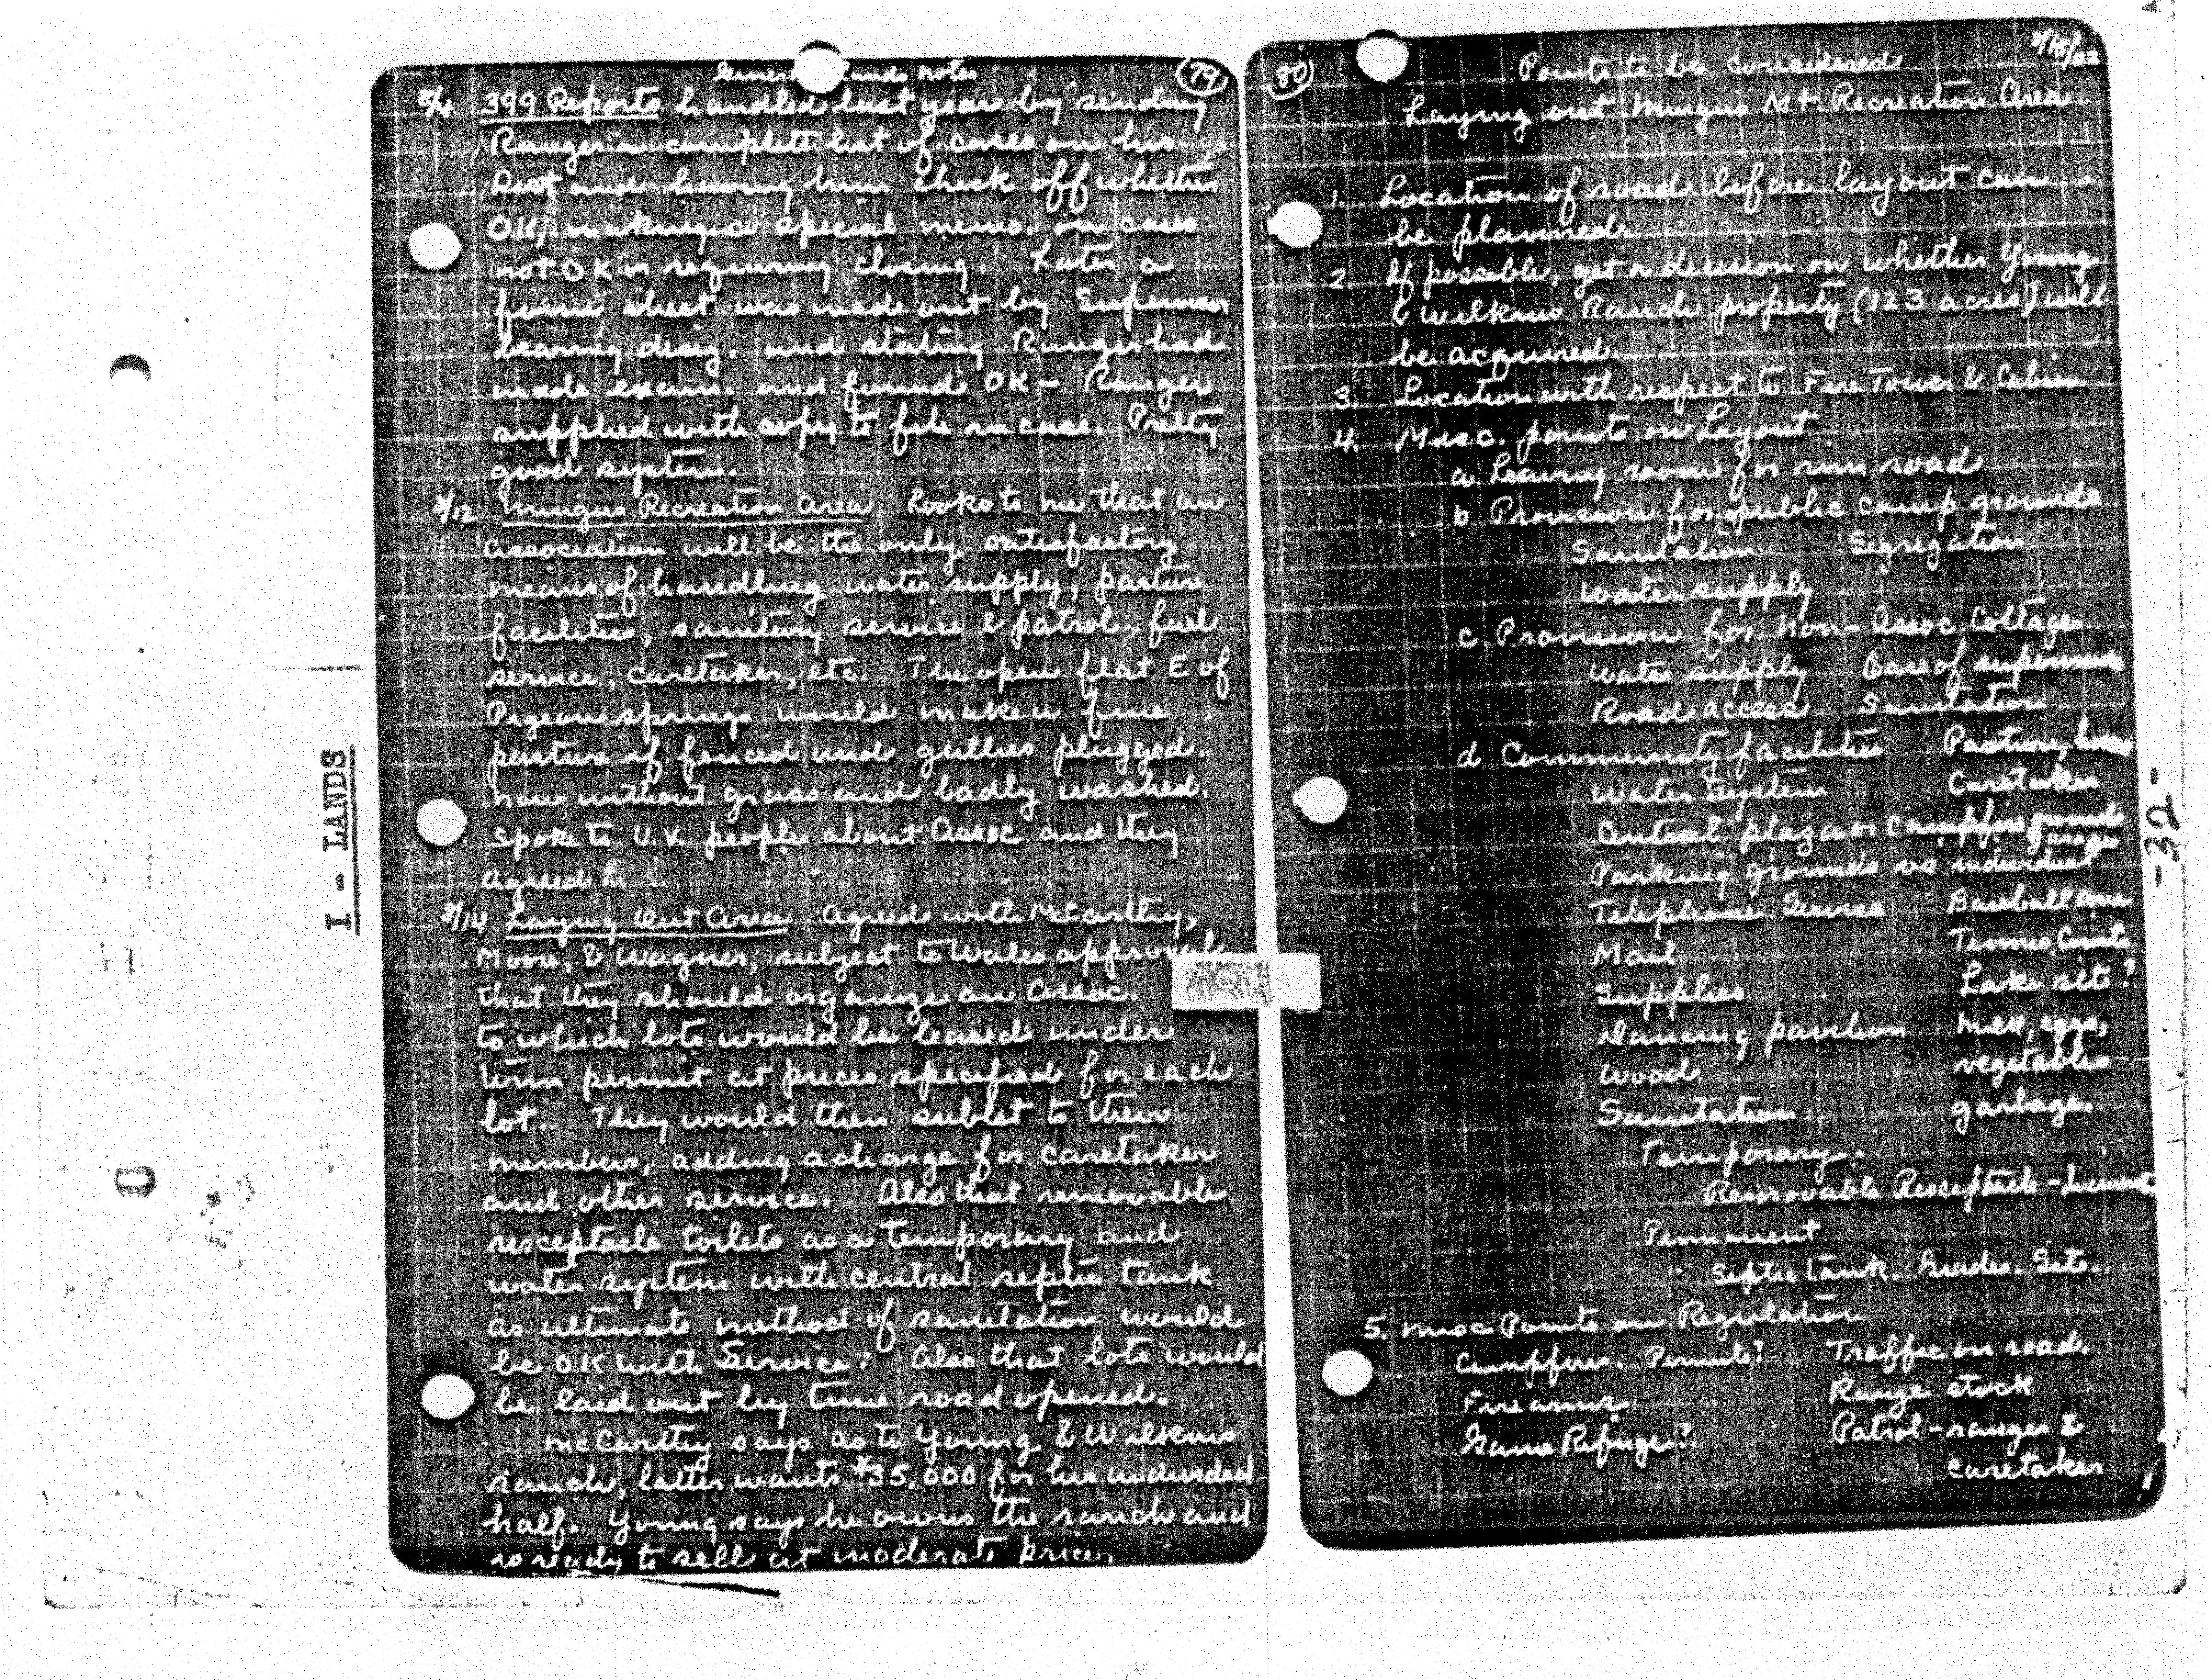 General Lands Notes
79
8/4 399 Reports handled last year by sending
Ranger a complete list of cases on his
Dist and having him check off whether
OK, making special memo. on cases
not OK or requiring closing. Later a
form sheet was made out by Supervisor
bearing desig. and stating Ranger had
made exam. and found OK - Ranger
supplied with copy to file in case. Pretty
good system.
8/12 Mingus Recreation Area Looks to me that an
association will be the only satisfactory
means of handling water supply, pasture
facilities, sanitary service & patrol, fuel
service, caretaker, etc. The open flat E of
Pigeon springs would make a fine
pasture if fenced and gullies plugged.
now without grass and badly washed.
Spoke to U.V. people about Assoc and they
agreed
8/14 Laying Out Area Agreed with McCarthy,
Moore, & Wagner, subject to Wales approval
that they should organize an Assoc.
to which lots would be leased under
term permit at prices specified for each
lot. They would then sublet to their
members, adding a charge for caretaker
and other service. Also that removable
resceptacle toilets as a temporary and
water system with central septic tank
as ultimate method of sanitation would
be OK with Service; Also that lots would
be laid out by time road opened.
McCarthy says as to Young & Wilkins
ranch, latter wants $35,000 for his undivided
half. Young says he owns the ranch and
is ready to sell at moderate price.
I - LANDS
80
Points to be considered
Laying out Mingus Mt Recreation Area
1. Location of road before layout can
be planned.
2. If possible, get a decision on whether Young
& Wilkins Ranch property (123 acres) will
be acquired.
3. Location with respect to Fire Tower & Cabin
4. Misc. points on Layout
a Leaving room for rim road
b Provision for public camp grounds
Sanitation Segregation
Water supply
c Provision for Non-Assoc. Cottages
Water supply Ease of supervision
Road access. Sanitation
d Community facilities Pasture,
Water System Caretaker
Central plaza or campfire grounds
Parking grounds vs individual garages
Telephone Service Baseball area
Mail Tennis Courts
Supplies Lake site?
Dancing pavilion Milk, eggs,
Wood vegetables
Sanitation garbage.
Temporary.
Removable Resceptacle -
Permanent
Septic tank. Grades. Site.
5. Misc Points on Regulation
Campfires. Permits? Traffic on road.
Firearms Range stock
Game Refuge? Patrol - ranger &
caretaker
-32-